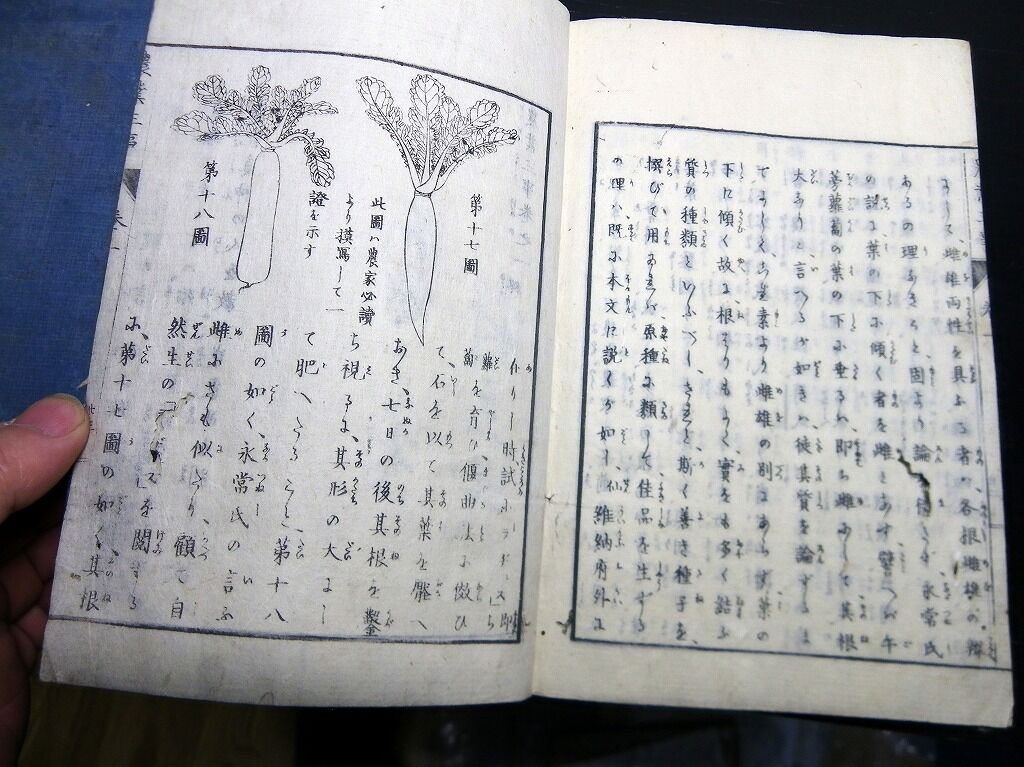 ありて、雌雄両性を具ふる者の、各根雌雄の辨
あるの理なきこと固より論を俟たず、永常氏
の説に葉の下に傾く者を雌となす、譬へバ午
蒡蘿蔔の葉の下に垂るハ、即ち雌にして、其根
大なりと言へるが如きハ、徒其質を論ずるま
でにして、素より雌雄の別にあらず、葉の
下に傾く故に、根そりもよく、實をも多く結ぶ
質の種類といふべし、されど、斯く善き種子を
撰びて用ゐれバ、原種に類して佳品を生ずる
の理ハ、既に本文に説くが如し、仏維納府外に
作りし時試にラヂス即ち
蘿蔔を育ひ、偃曲法に倣ひ
て、石を以て其葉を壓へ
おき、七日の後其根を鑿
ち視るに、其形の大にし
て肥へたること、第十八
圖の如く、永常氏の言ふ
雌にさも似たり、顧て自
然生のラヂスを閲するに
に、第十七圖の如く、其根
第十七圖
此圖ハ農家必讀
より摸寫して一
證を示す
第十八圖
農業三事
卷上